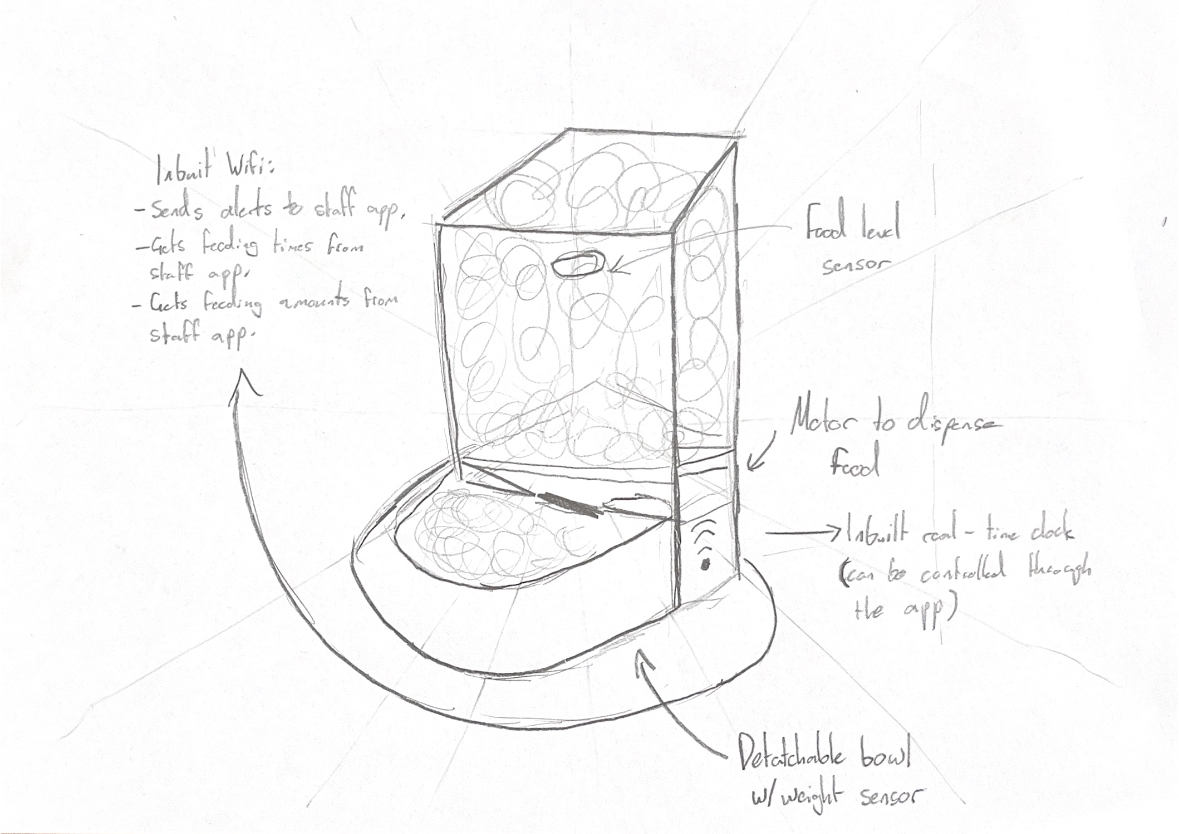 Inbuit Wifi:
- Sends alerts to staff app.
- Gets feeding times from
staff app.
- Gets feeding amounts from
staff app.
Food level
sensor
Motor to dispense
food
Inbuilt real-time clock
(can be controlled through
the app)
Detatchable bowl
w/ weight sensor